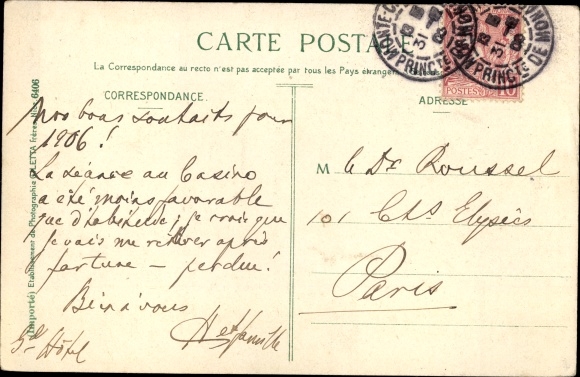 CARTE POSTALE
La Correspondance au recto n'est pas acceptée par tous les Pays étrangers
CORRESPONDANCE
ADRESSE
Nos bons souhaits pour
1906!
La séance au Casino
a été moins favorable
que d'habitude; je crois que
je vais me retirer après
fortune — perdue!
Bien à vous
Gd Hôtel
M le Dr Roussel
101 Chs Elysées
Paris
(Importé) Etablissement de Photographia GILETTA frères, Nice 6406
MONTE-C
PRINCTE DE MON
31
POSTES
10